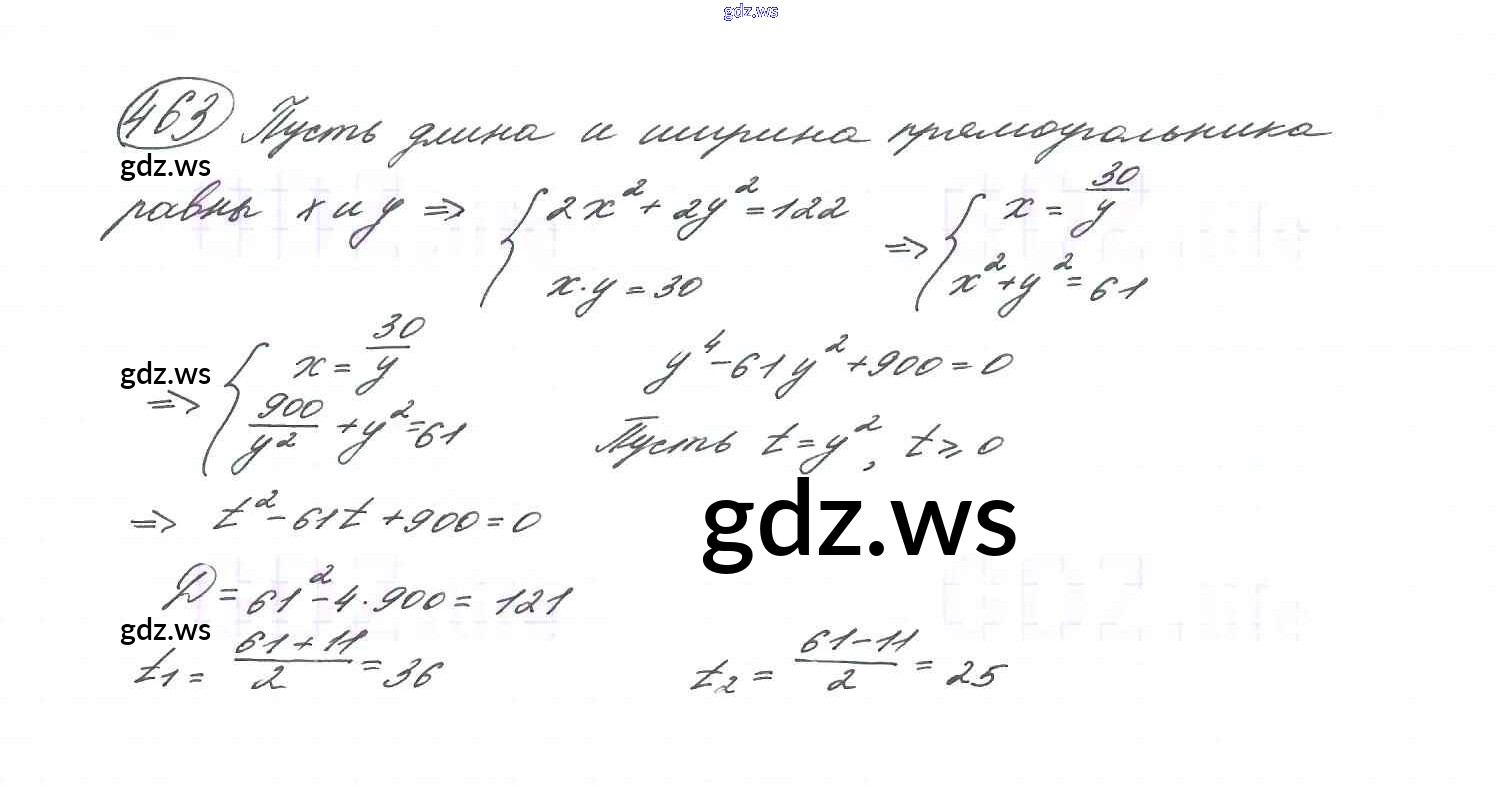 gdz.ws
463 Пусть длина и ширина прямоугольника
gdz.ws
равны x и y => { 2x² + 2y² = 122
x·y = 30
=> { x = 30/y
x² + y² = 61
gdz.ws
=> { x = 30/y
900/y² + y² = 61
y⁴ - 61y² + 900 = 0
Пусть t = y², t ⩾ 0
gdz.ws
=> t² - 61t + 900 = 0
D = 61² - 4·900 = 121
gdz.ws
t₁ = (61 + 11)/2 = 36
t₂ = (61 - 11)/2 = 25